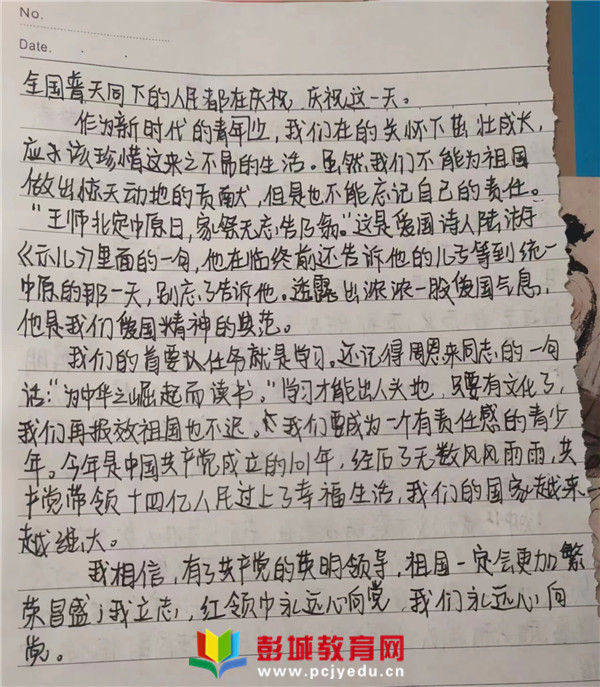 No.
Date.
全国普天同下的人民都在庆祝,庆祝这一天。
作为新时代的青年,我们在的关怀下茁壮成长,
应于该珍惜这来之不易的生活。虽然我们不能为祖国
做出惊天动地的贡献,但是也不能忘记自己的责任。
“王师北定中原日,家祭无忘告乃翁。”这是爱国诗人陆游
《示儿》里面的一句,他在临终前还告诉他的儿子等到统一
中原的那一天,别忘了告诉他。透露出浓浓一股爱国气息,
他是我们爱国精神的典范。
我们的首要任务就是学习。还记得周恩来同志的一句
话:“为中华之崛起而读书。”学习才能出人头地,只要有文化了,
我们再报效祖国也不迟。我们要成为一个有责任感的青少
年。今年是中国共产党成立的101年,经历了无数风风雨雨,共
产党带领十四亿人民过上了幸福生活,我们的国家越来
越强大。
我相信,有了共产党的英明领导,祖国一定会更加繁
荣昌盛,我立志,红领巾永远心向党,我们永远心向
党。
彭城教育网
www.pcjyedu.cn